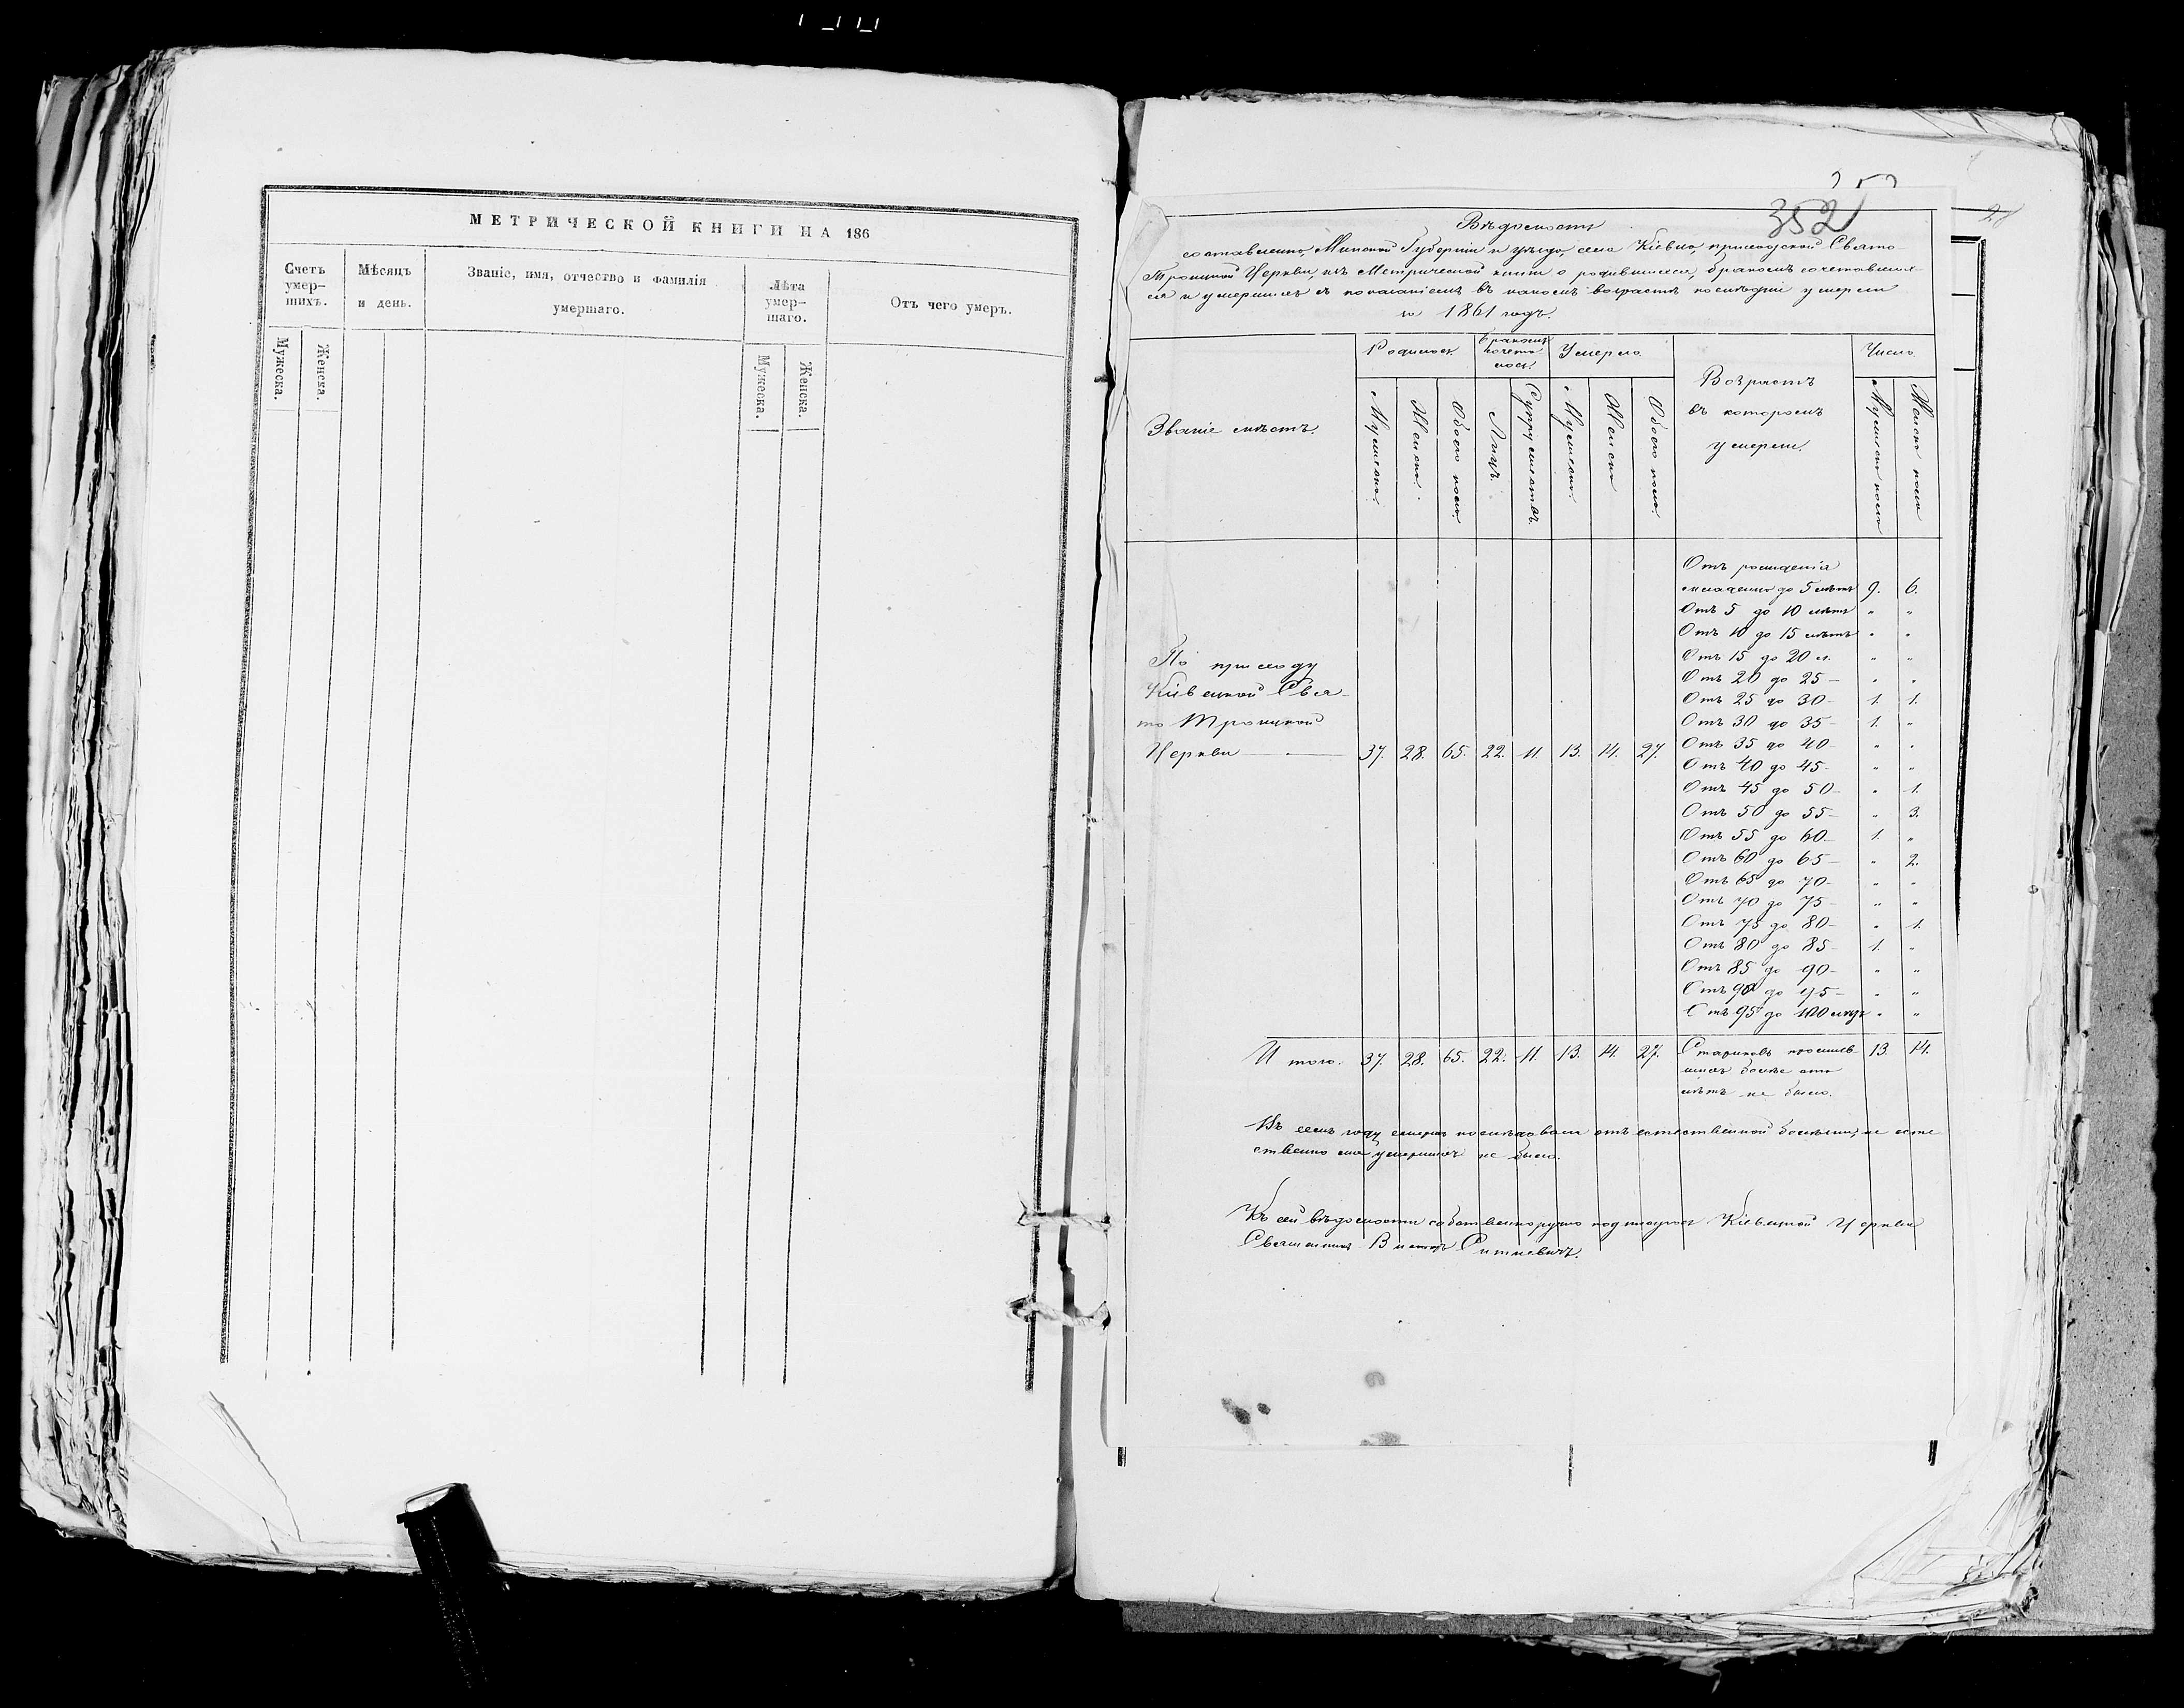 МЕТРИЧЕСКОЙ КНИГИ НА 186
Счетъ умер- шихъ.
Мѣсяцъ и день.
Званіе, имя, отчество и фамилія умершаго.
Лѣта умер- шаго.
Отъ чего умеръ.
Мужеска.
Женска.
Мужеска.
Женска.
352
Вѣдомость
составленна, Минской Губерніи и уѣзда, села Кіевца, приходской Свято
Троицкой Церкви, изъ Метрической книги о родившихся, бракомъ сочетавших-
ся и умершихъ съ показаніемъ въ какомъ возрастѣ послѣдніе умерли
за 1861 годъ.
Званіе мѣстъ.
Родилось
Бракомъ сочета- лось.
Умерло.
Возрастъ
въ которомъ
умерли.
Число
Мужеска.
Женска.
Обоего пола.
Лицъ.
Супружествъ.
Мужеска.
Женска
Обоего пола.
Мужеска пола
Женска пола
Отъ рожденія
младенца до 5 лѣтъ 9. 6.
Отъ 5 до 10 лѣтъ " "
Отъ 10 до 15 лѣтъ " "
Отъ 15 до 20 л. " "
Отъ 20 до 25 — " "
Отъ 25 до 30 - 1. 1.
Отъ 30 до 35 - 1. "
Отъ 35 до 40 - " "
Отъ 40 до 45 - " "
Отъ 45 до 50 - " 1.
Отъ 50 до 55 - " 3.
Отъ 55 до 60 - 1. "
Отъ 60 до 65 - " 2.
Отъ 65 до 70 - " "
Отъ 70 до 75 - " "
Отъ 75 до 80 - " 1.
Отъ 80 до 85 - 1. "
Отъ 85 до 90 - " "
Отъ 90 до 95 - " "
Отъ 95 до 100 лѣтъ " "
По приходу
Кіевецкой Свя-
то Троицкой
Церкви — 37. 28. 65. 22. 11. 13. 14. 27.
Итого. 37. 28. 65. 22. 11. 13. 14. 27. Стариковъ прожив- 13. 14.
шихъ болѣе ста
лѣтъ не было.
Въ семъ году смерть послѣдовала отъ естественной болѣзни, не есте-
ственно умершихъ не было.
Къ сей вѣдомости собственноручно подписуюсь Кіевецкой Церкви
Священникъ Викторъ Ситкевичъ.